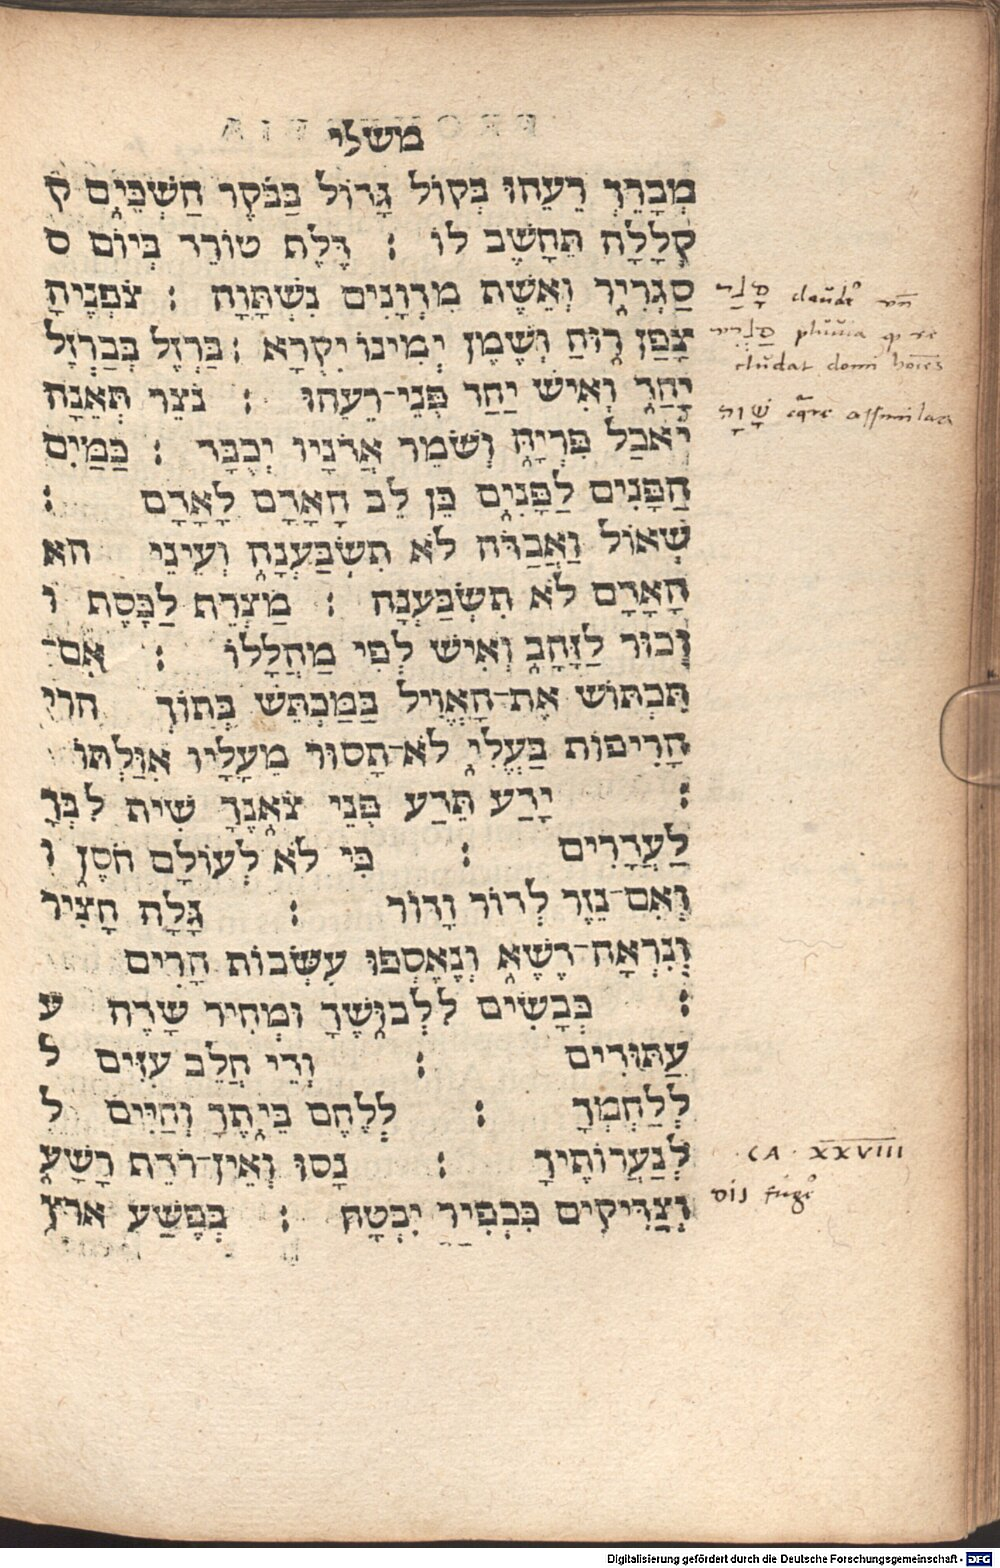 משלי
מְבָרֵךְ רֵעֵהוּ בְּקוֹל גָּדוֹל בַּבֹּקֶר הַשְׁכֵּים ק
קְלָלָה תֵּחָשֶׁב לוֹ : דֶּלֶת טוֹרֵד בְּיוֹם ס
סַגְרִיר וְאֵשֶׁת מִדְוָנִים נִשְׁתָּוָה : צֹפְנֶיהָ
צָפַן רוּחַ וְשֶׁמֶן יְמִינוֹ יִקְרָא : בַּרְזֶל בְּבַרְזֶל
יָחַד וְאִישׁ יַחַד פְּנֵי־רֵעֵהוּ : נֹצֵר תְּאֵנָה
יֹאכַל פִּרְיָהּ וְשֹׁמֵר אֲדֹנָיו יְכֻבָּד : כַּמַּיִם
הַפָּנִים לַפָּנִים כֵּן לֵב הָאָדָם לָאָדָם :
שְׁאוֹל וַאֲבַדֹּה לֹא תִשְׂבַּעְנָה וְעֵינֵי הא
הָאָדָם לֹא תִשְׂבַּעְנָה : מַצְרֵף לַכֶּסֶף ו
וְכוּר לַזָּהָב וְאִישׁ לְפִי מַהֲלָלוֹ : אִם־
תִּכְתּוֹשׁ אֶת־הָאֱוִיל בַּמַּכְתֵּשׁ בְּתוֹךְ הרי
הָרִיפוֹת בַּעֱלִי לֹא־תָסוּר מֵעָלָיו אִוַּלְתּוֹ
: יָדֹעַ תֵּדַע פְּנֵי צֹאנֶךָ שִׁית לִבְּךָ
לַעֲדָרִים : כִּי לֹא לְעוֹלָם חֹסֶן ו
וְאִם־נֵזֶר לְדוֹר וָדוֹר : גָּלָה חָצִיר
וְנִרְאָה־דֶשֶׁא וְנֶאֶסְפוּ עִשְּׂבוֹת הָרִים
: כְּבָשִׂים לִלְבוּשֶׁךָ וּמְחִיר שָׂדֶה ע
עַתּוּדִים : וְדֵי חֲלֵב עִזִּים ל
לְלַחְמְךָ : לְלֶחֶם בֵּיתֶךָ וְחַיִּים ל
לְנַעֲרוֹתֶיךָ : נָסוּ וְאֵין־רֹדֵף רָשָׁע
וְצַדִּיקִים כִּכְפִיר יִבְטָח : בְּפֶשַׁע ארץ
סָגַר
סַגְרִיר pluuia
cludat domi hoīes
שָׁוָה assimilare
CA · XXVIII
Digitalisierung gefördert durch die Deutsche Forschungsgemeinschaft - DFG